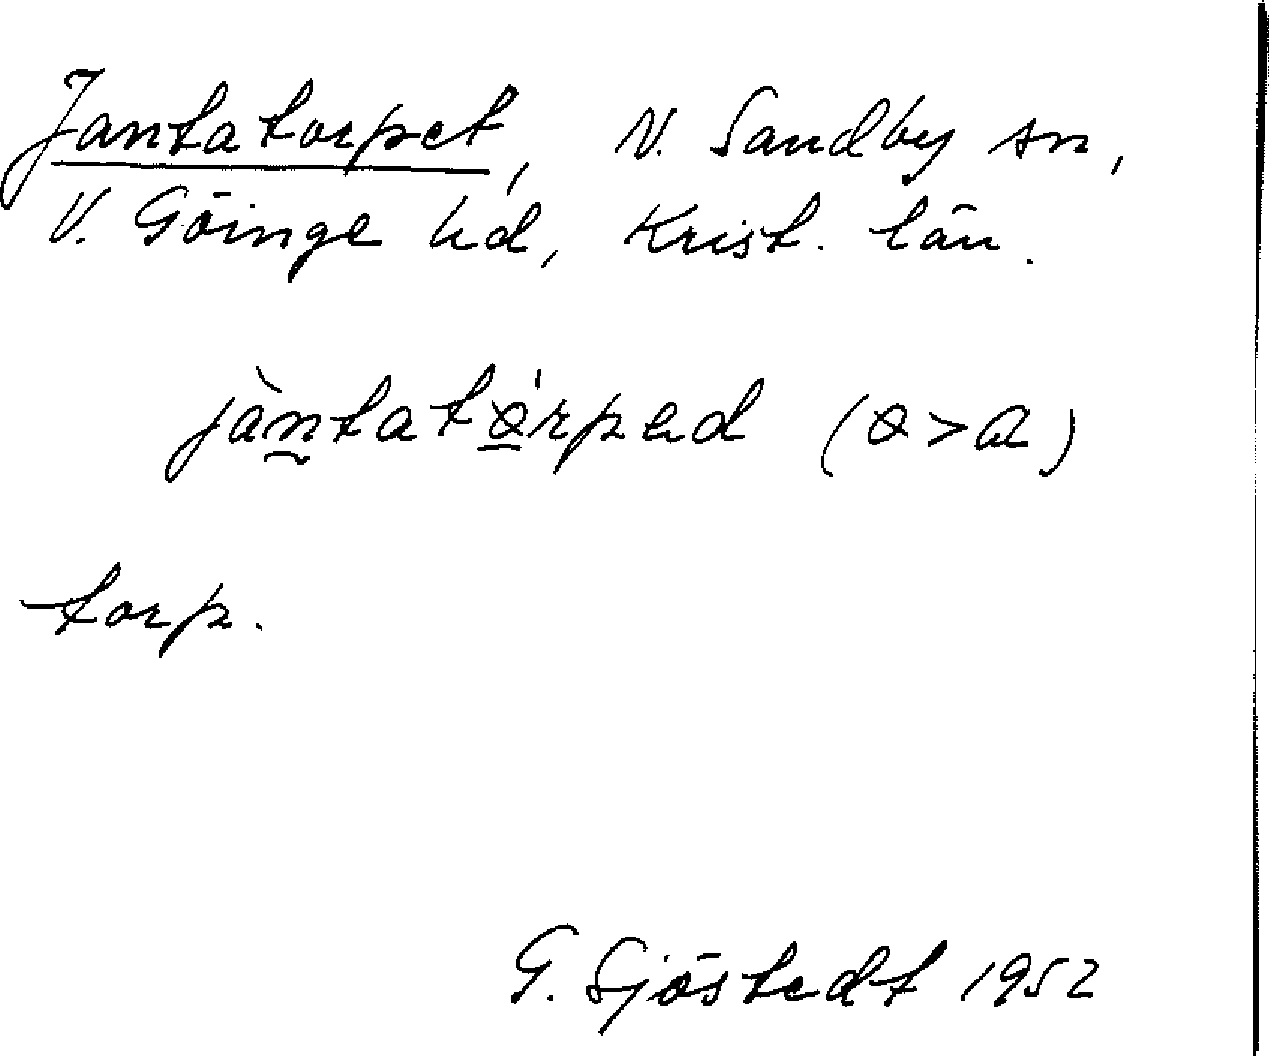 Jantatorpet, N. Sandby sn,
V. Göinge hd, Krist. län.
jàn̰tatɵ̠́rpəd (ɵ>a)
torp.
G. Sjöstedt 1952